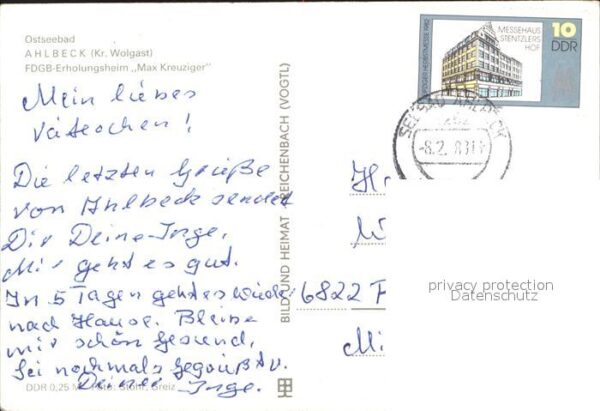 Ostseebad
AHLBECK (Kr. Wolgast)
FDGB-Erholungsheim „Max Kreuziger"
Mein liebes
Väterchen!
Die letzten Grüße
von Ahlbeck sendet
Dir Deine Inge,
Mir geht es gut.
In 5 Tagen geht es wieder
nach Hause. Bleibe
mir schön gesund,
Sei nochmals gegrüßt v.
Deiner Inge.
DDR 0,25 M Stöhr, Greiz
BILD UND HEIMAT REICHENBACH (VOGTL)
LEIPZIGER HERBSTMESSE 1982
MESSEHAUS
STENTZLERS
HOF
10
DDR
SEEBAD AHLBECK
-8.2.83
6822
privacy protection
Datenschutz